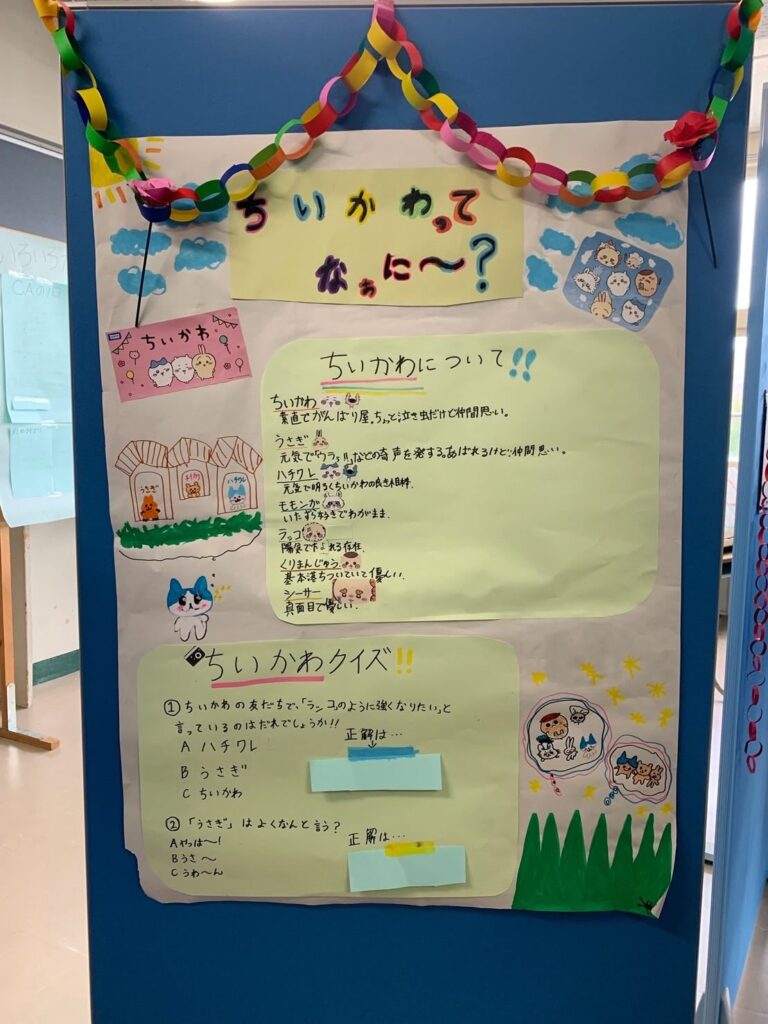 ちいかわって
なぁに〜?
ちいかわ
ちいかわについて!!
ちいかわ
素直でがんばり屋。ちょっと泣き虫だけど仲間思い。
うさぎ
元気で「ウラッ!!」などの奇声を発する。あばれるけど仲間思い。
ハチワレ
元気で明るくちいかわの良き相棒.
モモンガ
いたずら好きでわがまま.
ラッコ
陽気でたよれる存在.
くりまんじゅう
基本落ちついていて優しい.
シーサー
真面目で優しい.
うさぎ
ハチワレ
ちいかわクイズ!!
① ちいかわの友だちで、「ランコのように強くなりたい」と
言っているのはだれでしょうか!!
A ハチワレ
B うさぎ
C ちいかわ
正解は…
② 「うさぎ」はよくなんと言う?
A やっは〜!
B うさ〜
C うわ〜ん
正解は…